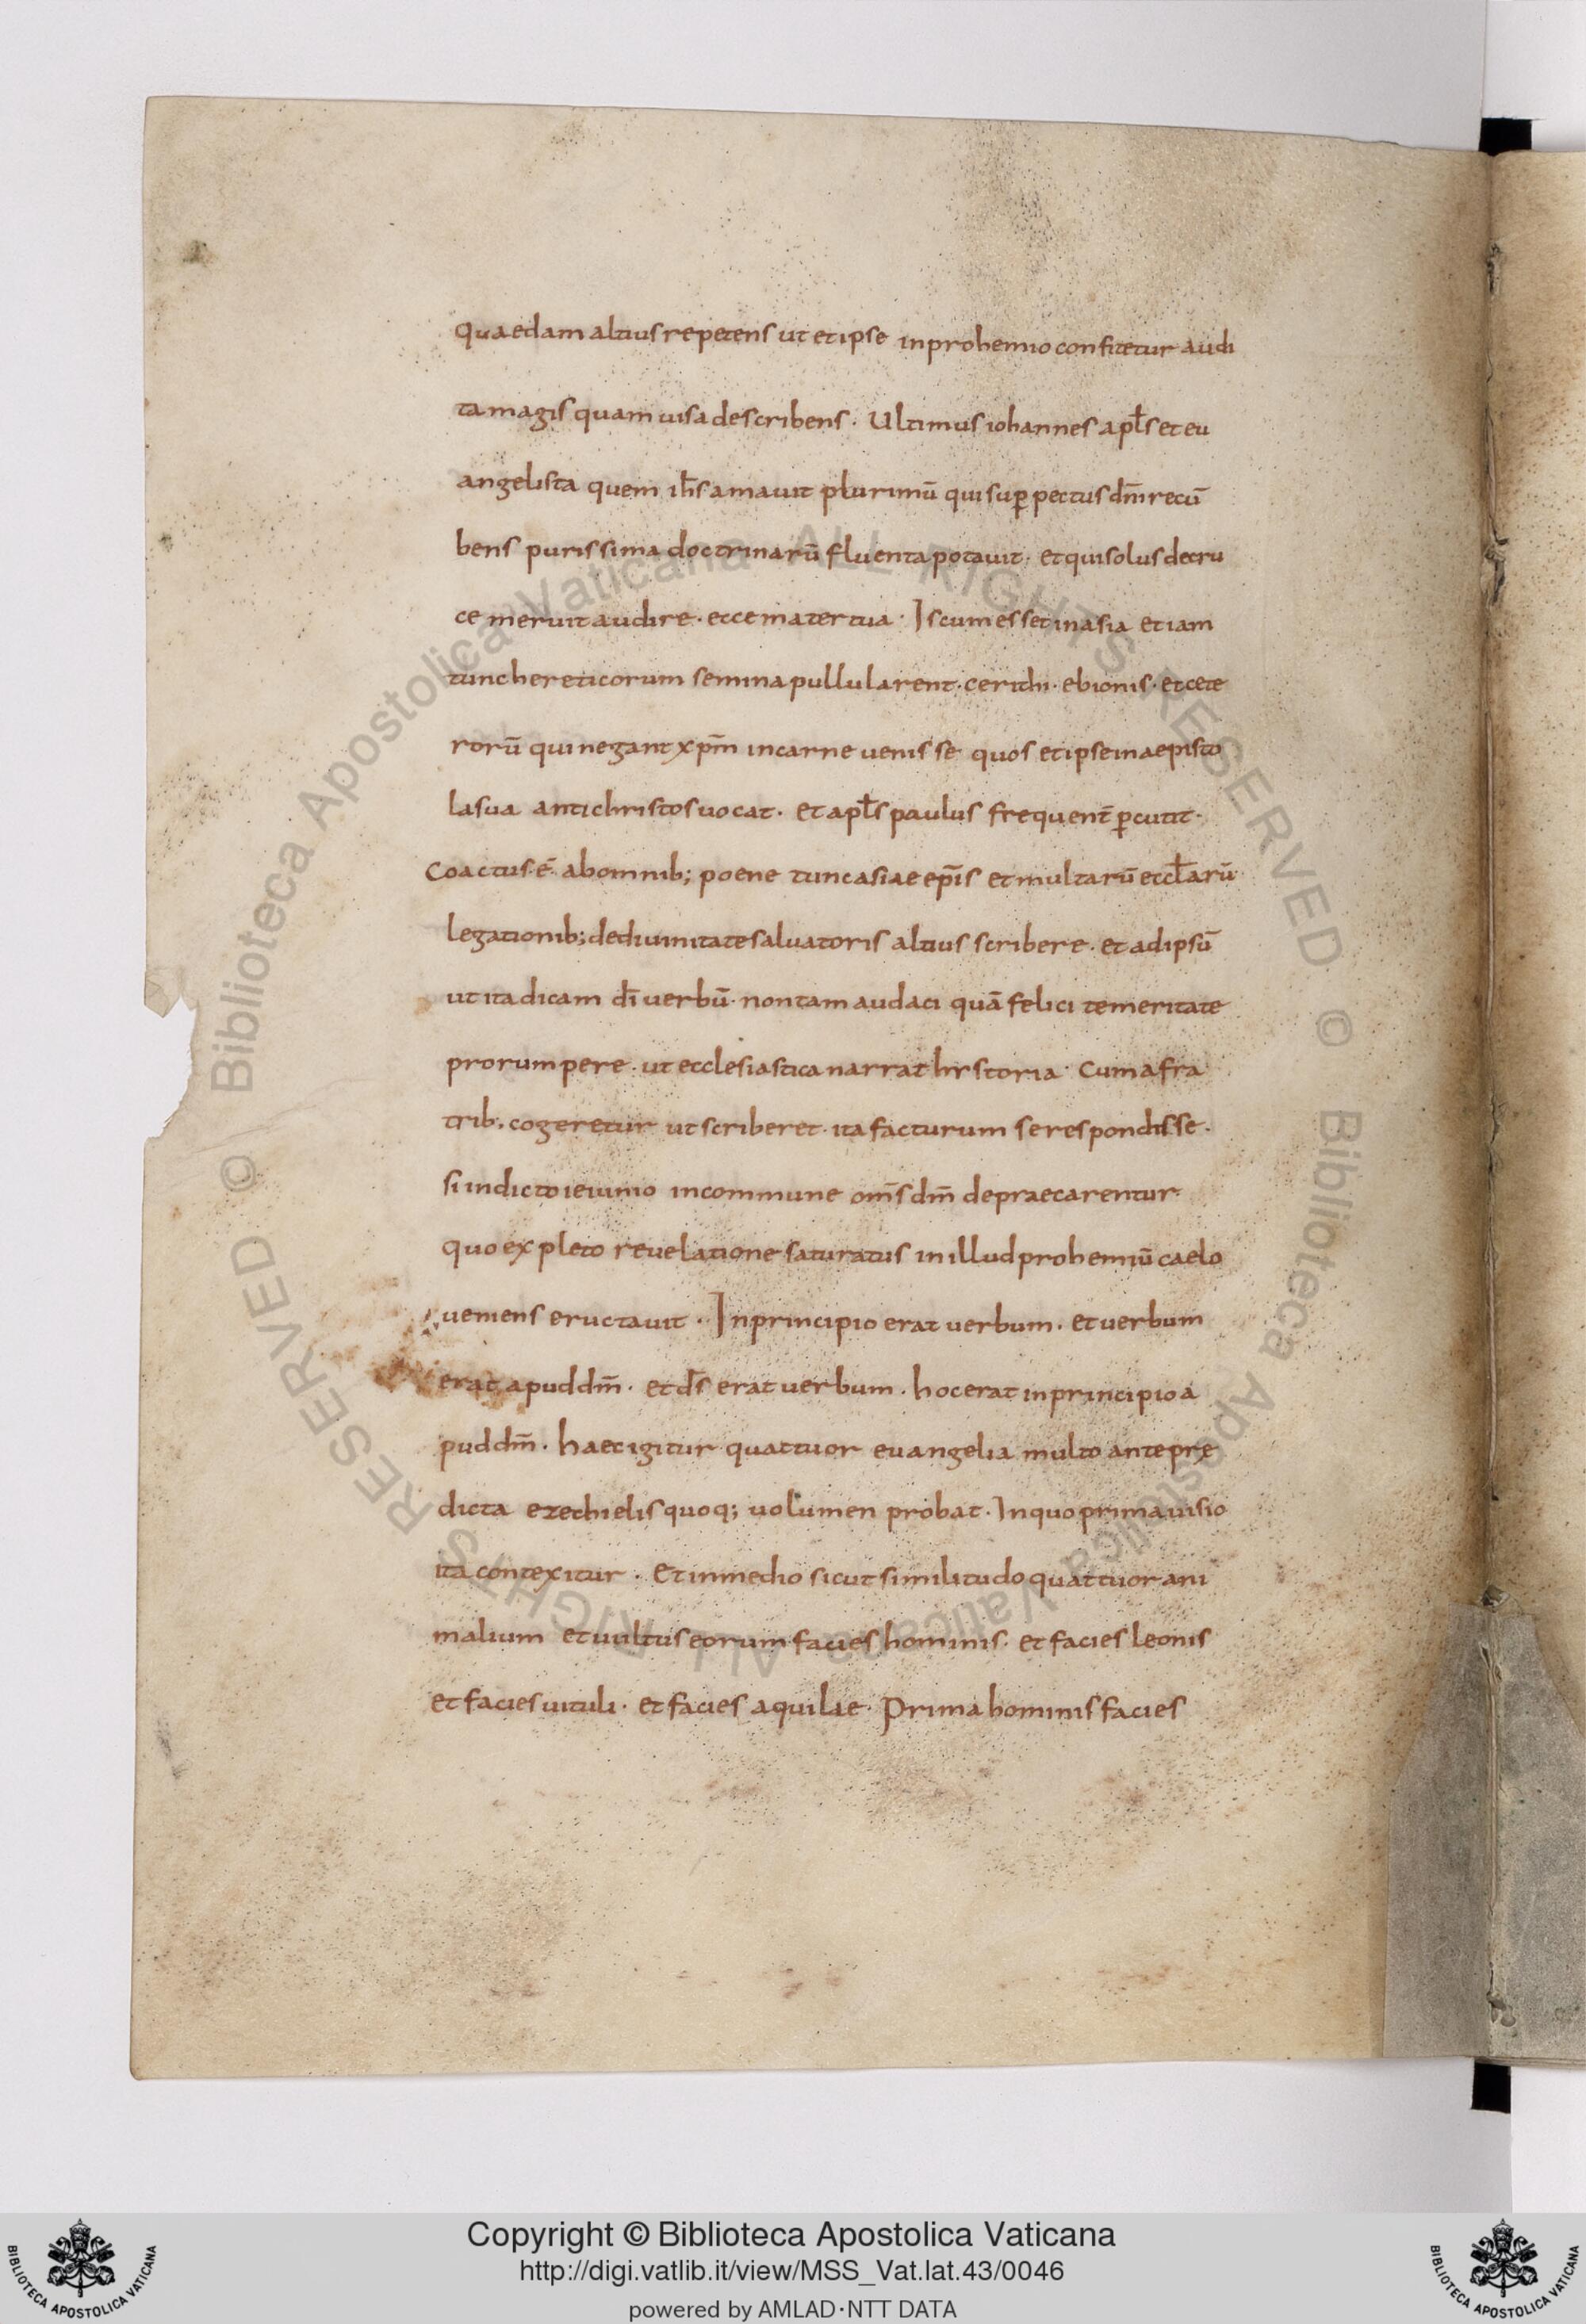 quaedam altius repetens ut et ipse in prohemio confitetur audi
ta magis quam uisa describens · Ultimus iohannes apl̄s et eu
angelista quem ih̄s amauit plurimū qui sup̱ pectus dn̄i recū
bens purissima doctrinarū fluenta potauit · et qui solus de cru
ce meruit audire · ecce mater tua · Is cum esset in asia et iam
tunc hereticorum semina pullularent · cerithi · ebionis · et cete
rorū qui negant xp̄m in carne uenisse quos et ipse in aepisto
la sua antichristos uocat · et apl̄s paulus frequent̄ p̱cutit ·
Coactus · ē · ab omnib; poene tunc asiae ep̄is et multarū eccl̄arū
legationib; de diuinitate saluatoris altius scribere · et ad ipsū
ut ita dicam dī uerbū · non tam audaci quā felici temeritate
prorumpere · ut ecclesiastica narrat hystoria · Cum a fra
trib; cogeretur ut scriberet · ita facturum se respondisse ·
si indicto ieiunio in commune om̄s dm̄ depraecarentur ·
quo expleto reuelatione saturatus in illud prohemiū caelo
ueniens eructauit · In principio erat uerbum · et uerbum
erat apud dm̄ · et ds̄ erat uerbum · hoc erat in principio a
pud dm̄ · haec igitur quattuor euangelia multo ante prę
dicta ezechielis quoq; uolumen probat · In quo prima uisio
ita contexitur · Et in medio sicut similitudo quattuor ani
malium et uultus eorum facies hominis · et facies leonis
et facies uituli · et facies aquilae · Prima hominis facies
Copyright © Biblioteca Apostolica Vaticana
http://digi.vatlib.it/view/MSS_Vat.lat.43/0046
powered by AMLAD·NTT DATA
BIBLIOTECA APOSTOLICA VATICANA
BIBLIOTECA APOSTOLICA VATICANA
© Biblioteca Apostolica Vaticana ALL RIGHTS RESERVED © Biblioteca Apostolica Vaticana ALL RIGHTS RESERVED